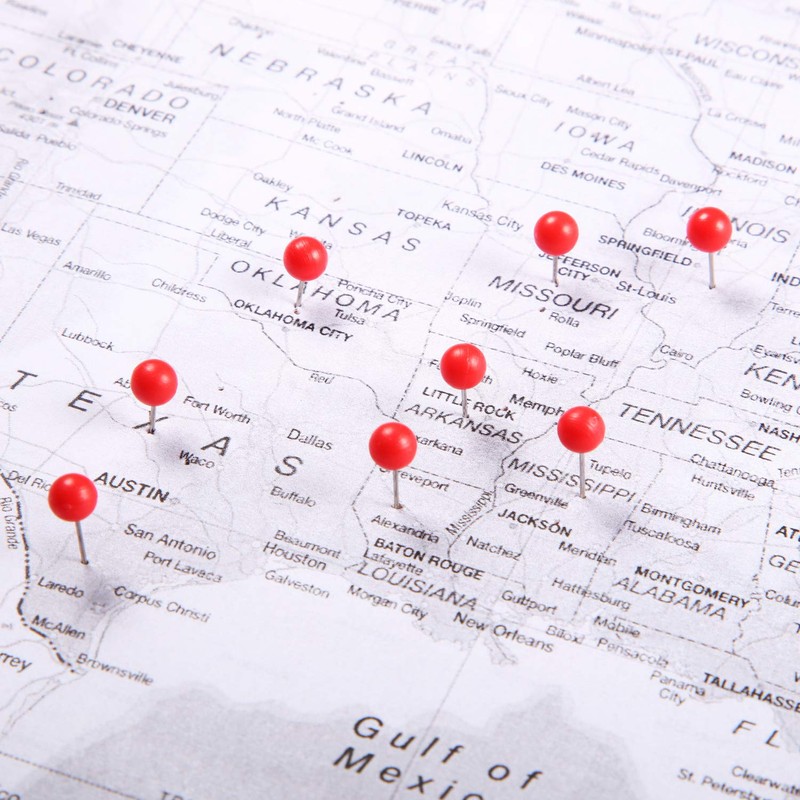 PIERRE
Minneapolis
ST-PAUL
WISCONS
Eau Claire
Sioux Falls
GREAT
PLAINS
CHEYENNE
Ft. Collins
Laramie
COLORADO
DENVER
Colorado-Springs
Julesburg
Salida
Pueblo
4301 m
NEBRASKA
Valentine
Bassett
North Platte
Grand Island
Mc Cook
Omaha
LINCOLN
Albert Lea
Sioux City
Mason City
IOWA
Cedar Rapids
Davenport
DES MOINES
La Crosse
MADISON
Rockford
Trinidad
Las Vegas
Rio Grande
Oakley
KANSAS
TOPEKA
Dodge City
Liberal
Kansas City
JEFFERSON
CITY
SPRINGFIELD
St-Louis
NOIS
IND
MISSOURI
Joplin
Springfield
Rolla
Poplar Bluff
Cairo
Amarillo
Childress
OKLAHOMA
Poncha City
Tulsa
OKLAHOMA CITY
Lubbock
Red
Hoxie
LITTLE ROCK
ARKANSAS
Memph
KEN
Bowling
NASH
TENNESSEE
Chattanooga
Huntsville
TEXAS
Fort Worth
Dallas
Waco
Buffalo
AUSTIN
Del Rio
Rio Grande
San Antonio
Port Lavaca
Laredo
Corpus Christi
McAllen
Brownsville
rrey
Beaumont
Houston
Galveston
arkana
eveport
Alexandria
BATON ROUGE
Lafayette
LOUISIANA
Morgan City
New Orleans
Mississippi
MISSISSIPPI
Tupelo
Greenville
JACKSON
Natchez
Meridian
Hattiesburg
Gulfport
Biloxi
Birmingham
Tuscaloosa
MONTGOMERY
ALABAMA
Mobile
Pensacola
Panama
City
TALLAHASSE
AT
GE
FL
Clearwater
St. Petersburg
Gulf of
Mexic